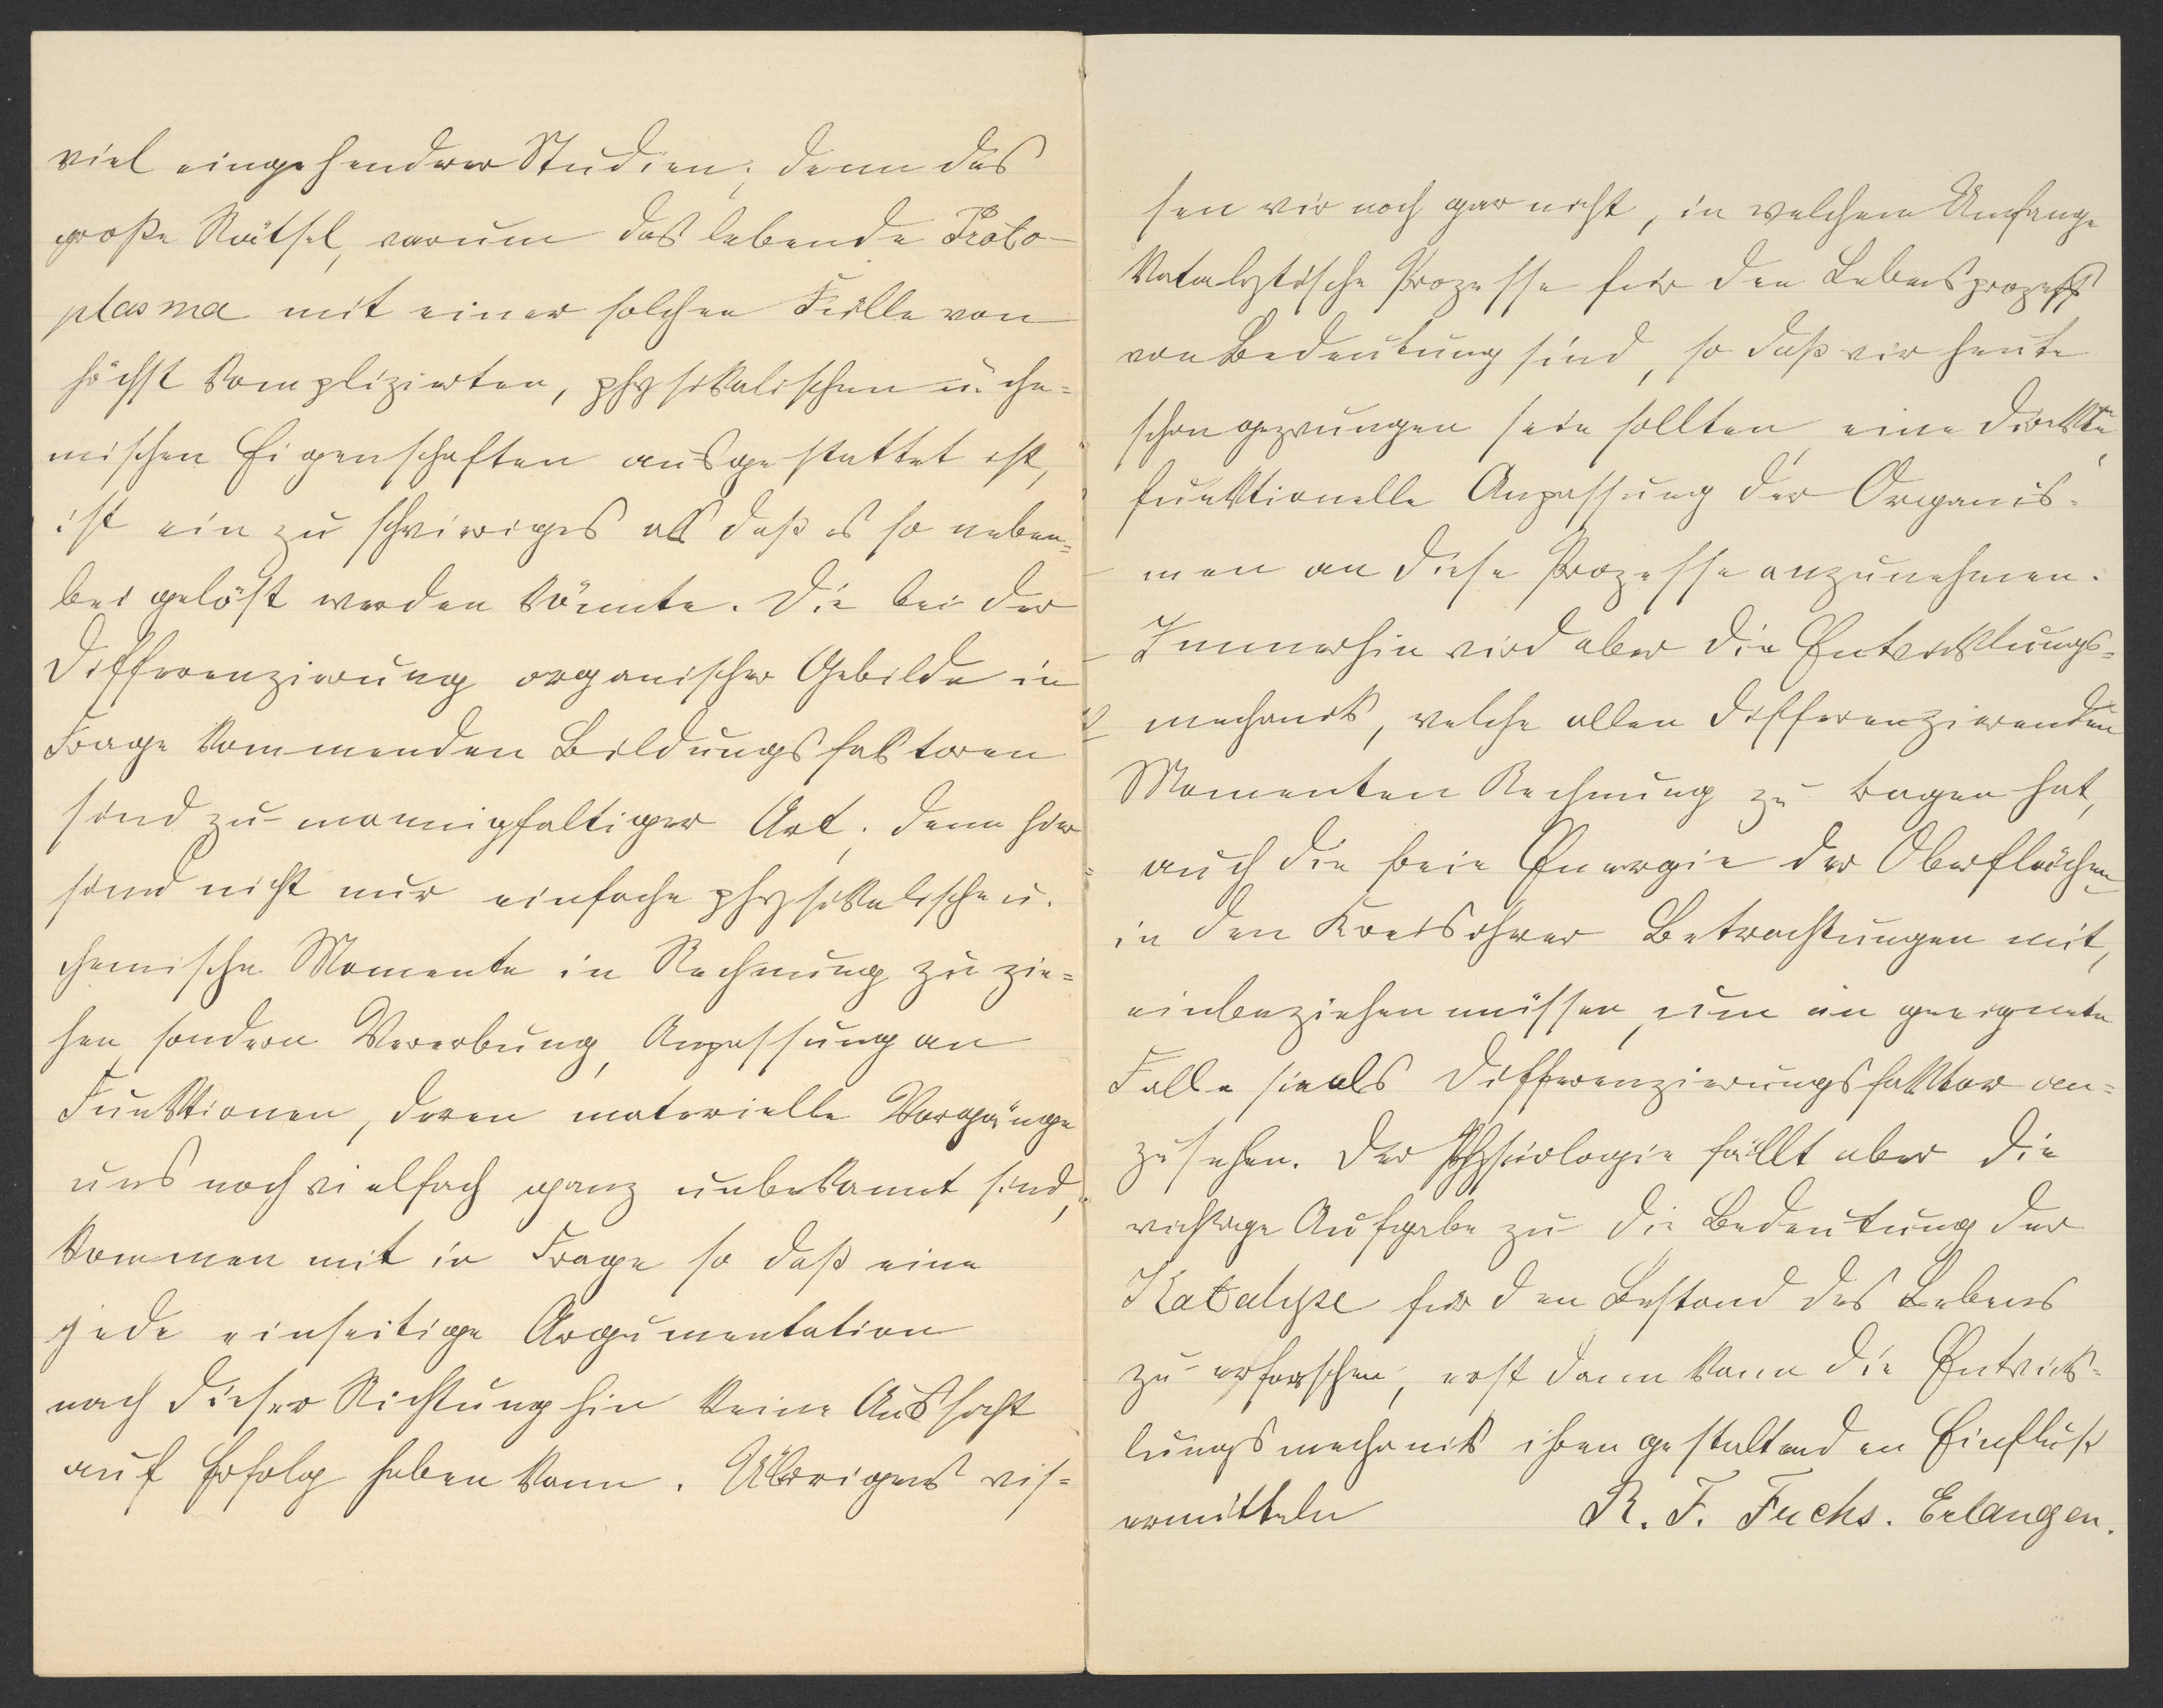 viel eingehendrer Studien; denn das
große Rätsel, warum das lebende Proto-
plasma mit einer solchen Fülle von
höchst komplizierten, physikalischen u. che=
mischen Eigenschaften ausgestattet ist,
ist ein zu schwieriges als daß es so neben=
bei gelöst werden könnte. Die bei der
Differenzierung organischer Gebilde in
Frage kommenden Bildungsfaktoren
sind zu mannigfaltiger Art; denn hier
sind nicht nur einfache physikalische u.
chemische Momente in Rechnung zu zie=
hen, sondern Vererbung, Anpassung an
Funktionen, deren materielle Vorgänge
uns noch vielfach ganz unbekannt sind,
kommen mit in Frage so daß eine
jede einseitige Argumentation
nach dieser Richtung hin keine Aussicht
auf Erfolg haben kann. Übrigens wis=
sen wir noch gar nicht, in welchem Umfange
katalytische Prozesse für den Lebensprozess
von Bedeutung sind, so daß wir heute
schon gezwungen sein sollten, eine direkte,
funktionelle Anpassung der Organis=
men an diese Prozesse anzunehmen.
Immerhin wird aber die Entwicklungs=
mechanik, welche allen differenzierenden
Momenten Rechnung zu tragen hat,
auch die freie Energie der Oberflächen
in den Kreis ihrer Betrachtungen mit,
einbeziehen müssen, um im geeigneten
Falle sie als Differenzierungsfaktor an=
zusehen. Der Physiologie fällt aber die
wichtige Aufgabe zu die Bedeutung der
Katalyse für den Bestand des Lebens
zu erforschen, erst dann kann die Entwick=
lungsmechanik ihren gestaltenden Einfluß
ermitteln R. F. Fuchs. Erlangen.